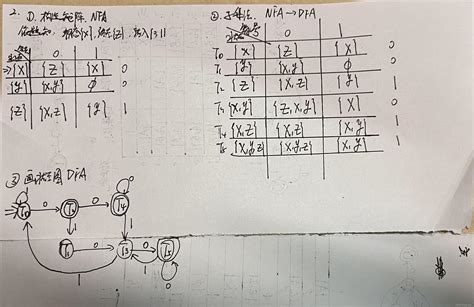 2. ①. 构造矩阵. NFA
依题知, 初态{x}, 终态{z}, 输入{0,1}
状态 符号 0 1
→{x} {z} {x} 0
{y} {x,y} ∅ 0
{z} {x,z} {y} 1
② 子集法. NFA→DFA
状态 符号 0 1
T₀ {x} {z} {x} 0
T₁ {y} {x,y} ∅ 0
T₂ {z} {x,z} {y} 1
T₃ {x,y} {z,x,y} {x} 0
T₄ {x,z} {x,z} {x,y} 1
T₅ {x,y,z} {x,y,z} {x,y} 1
③ 画状态图 DFA
0
0 0 T₄
1 1
T₁ 0 T₃ 0 T₅
1 1 0